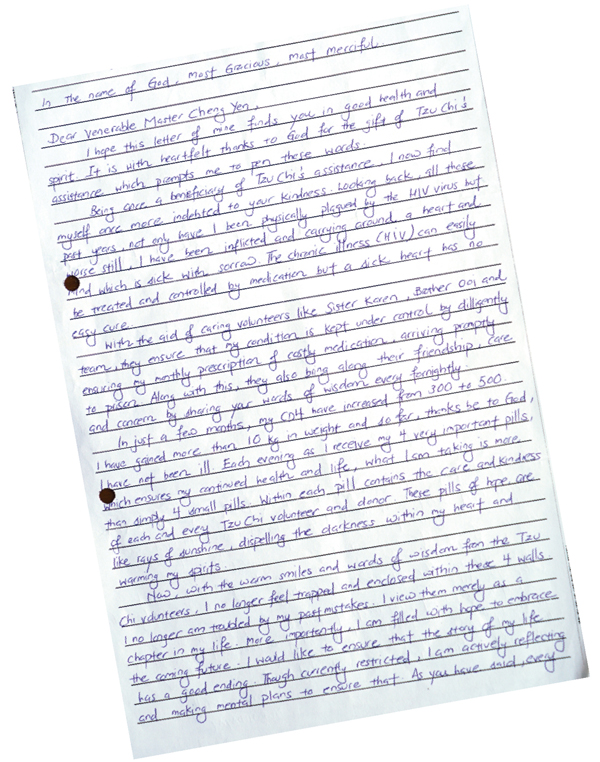 In the name of God, most Gracious, most merciful.
Dear Venerable Master Cheng Yen,
I hope this letter of mine finds you in good health and
spirit. It is with heartfelt thanks to God for the gift of Tzu Chi's
assistance which prompts me to pen these words.
Being once a beneficiary of Tzu Chi's assistance. I now find
myself once more indebted to your kindness. Looking back, all those
past years, not only have I been physically plagued by the HIV virus but
worse still, I have been inflicted and carrying around, a heart and
mind which is sick with sorrow. The chronic illness (HIV) can easily
be treated and controlled by medication but a sick heart has no
easy cure.
With the aid of caring volunteers like Sister Karen, Brother Ooi and
team, they ensure that my condition is kept under control by diligently
ensuring my monthly prescription of costly medication, arriving promptly
to prison. Along with this, they also bring along their friendship, care
and concern by sharing your words of wisdom every fornightly.
In just a few months, my CD4 have increased from 300 to 500.
I have gained more than 10 kg in weight and so far, thanks be to God,
I have not been ill. Each evening as I receive my 4 very important pills,
which ensures my continued health and life, what I am taking is more
than simply 4 small pills. Within each pill contains the care and kindness
of each and every Tzu Chi volunteer and donor. These pills of hope are
like rays of sunshine, dispelling the darkness within my heart and
warming my spirits.
Now, with the warm smiles and words of wisdom from the Tzu
Chi volunteers, I no longer feel trapped and enclosed within these 4 walls
I no longer am troubled by my past mistakes. I view them merely as a
chapter in my life. More importently, I am filled with hope to embrace
the coming future. I would like to ensure that the story of my life
has a good ending. Though currently restricted, I am actively reflecting
and making mental plans to ensure that. As you have said, every